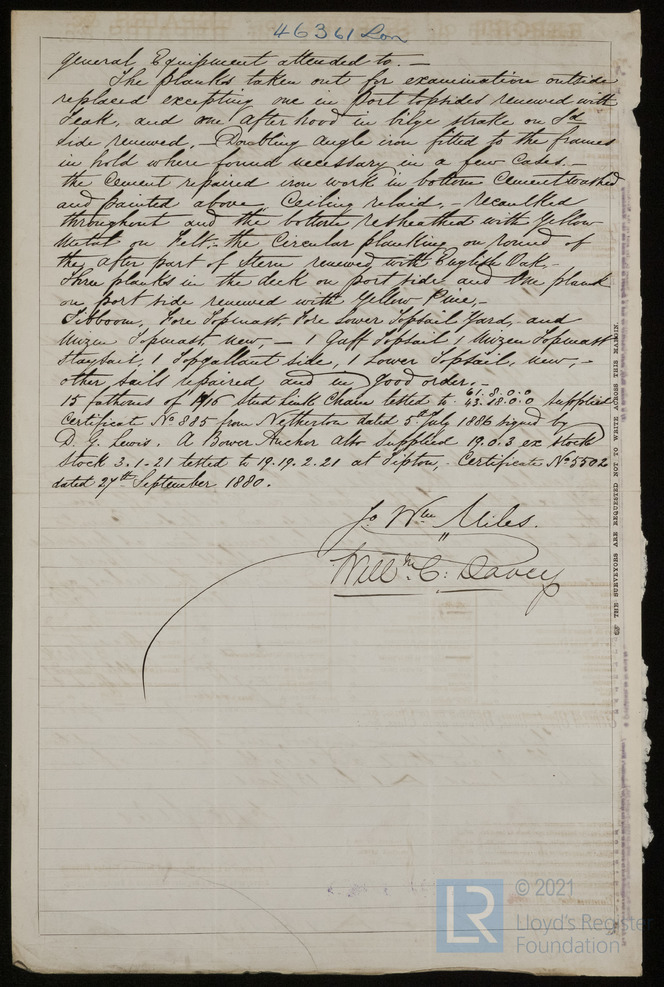 46361 Lon
general Equipment attended to. —
The planks taken out for examination outside
replaced excepting one in Port topsides renewed with
Teak, and one after hood in bilge strake on Sd
side renewed. — Doubling angle iron fitted to the frames
in hold where found necessary in a few cases. —
the Cement repaired iron work in bottom Cementwashed
and painted above, Ceiling relaid, — recaulked
throughout and the bottom resheathed with Yellow
Metal on Felt, — the Circular planking on round of
the after part of Stern renewed with English Oak, —
Three planks in the deck on port side and One plank
on port side renewed with Yellow Pine, —
Jibboom, Fore Topmast, Fore Lower Topsail Yard, and
Mizen Topmast, new, — 1 Gaff Topsail 1 Mizen Topmast
Staysail, 1 Topgallant side, 1 Lower Topsail, new, —
other sails repaired and in good order. —
61. 8. 0. 0
15 fathoms of 1 9/16 Stud Link Chain tested to 43. 18. 0. 0 supplied
Certificate No 885 from Netherton dated 5th July 1886 signed by
D. G. Lewis. A Bower Anchor also supplied 19. 0. 3 ex Stock
Stock 3. 1. 21 tested to 19. 19. 2. 21 at Tipton, Certificate No 5502
dated 27th September 1880.
Jo Wm Miles.
Willm C: Davey
THE SURVEYORS ARE REQUESTED NOT TO WRITE ACROSS THIS MARGIN.
LR
© 2021
Lloyd's Register
Foundation